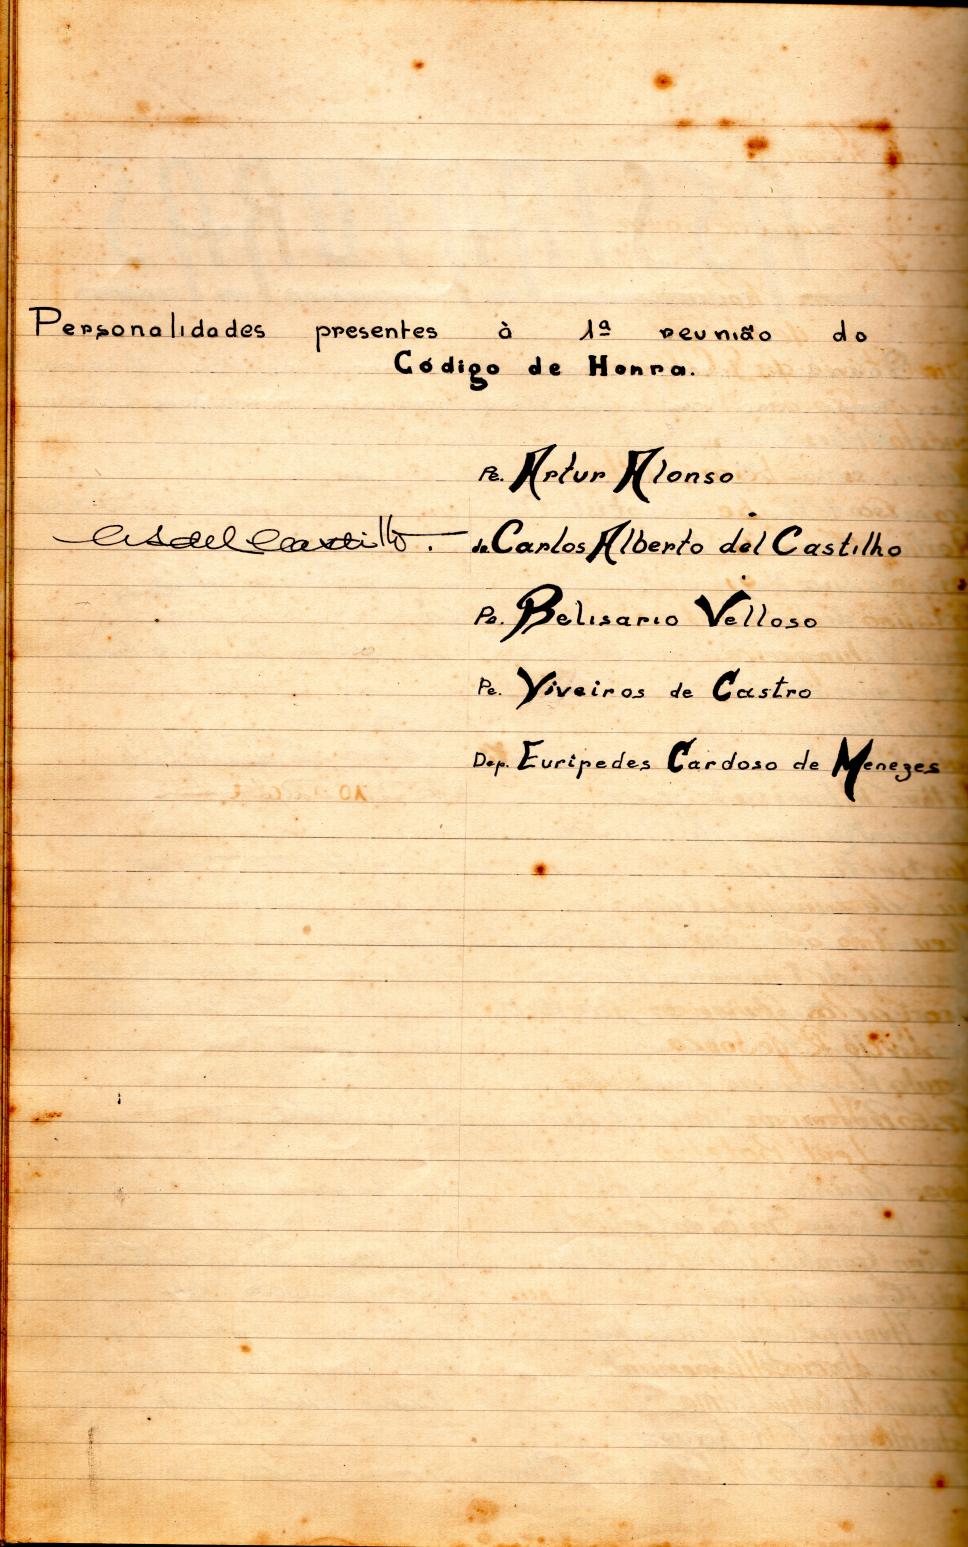 Personalidades presentes à 1ª reunião do
Código de Honra.
Pe. Artur Alonso
de Carlos Alberto del Castilho
Pe. Belisario Velloso
Pe. Viveiros de Castro
Dep. Eurípedes Cardoso de Menezes